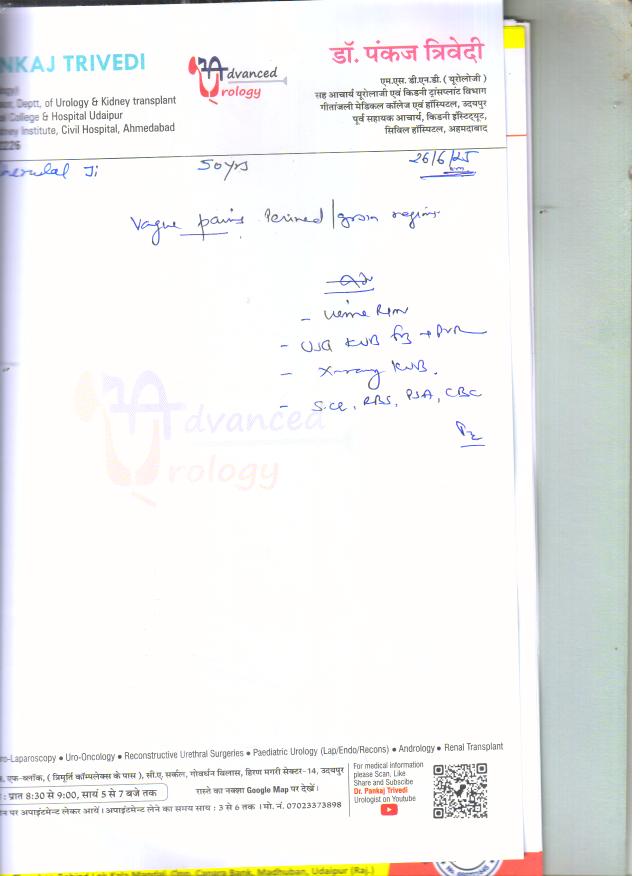 NKAJ TRIVEDI
Advanced
Urology
डॉ. पंकज त्रिवेदी
एम.एस. डी.एन.डी. ( यूरोलोजी )
सह आचार्य यूरोलोजी एवं किडनी ट्रांसप्लांट विभाग
गीतांजली मेडिकल कॉलेज एवं हॉस्पिटल, उदयपुर
पूर्व सहायक आचार्य, किडनी इंस्टिट्यूट,
सिविल हॉस्पिटल, अहमदाबाद
Deptt. of Urology & Kidney transplant
College & Hospital Udaipur
ney Institute, Civil Hospital, Ahmedabad
2226
Ji 50 yrs 26/6/25
Vague pains / groin region
- Urine R/M
- USG KUB + PVR
- X-ray KUB.
- S.Cr, RBS, PSA, CBC
Advanced
Urology
ro-Laparoscopy ● Uro-Oncology ● Reconstructive Urethral Surgeries ● Paediatric Urology (Lap/Endo/Recons) ● Andrology ● Renal Transplant
एफ-ब्लॉक, ( त्रिमूर्ति कॉम्पलेक्स के पास ), सी.ए. सर्कल, गोवर्धन विलास, हिरण मगरी सेक्टर-14, उदयपुर
: प्रात 8:30 से 9:00, सायं 5 से 7 बजे तक रास्ते का नक्शा Google Map पर देखें।
न पर अपाइंटमेन्ट लेकर आयें। अपाइंटमेन्ट लेने का समय साय : 3 से 6 तक । मो. नं. 07023373898
For medical information
please Scan, Like
Share and Subscibe
Dr. Pankaj Trivedi
Urologist on Youtube
Kala Mandal, Opp. Canara Bank, Madhuban, Udaipur (Raj.)